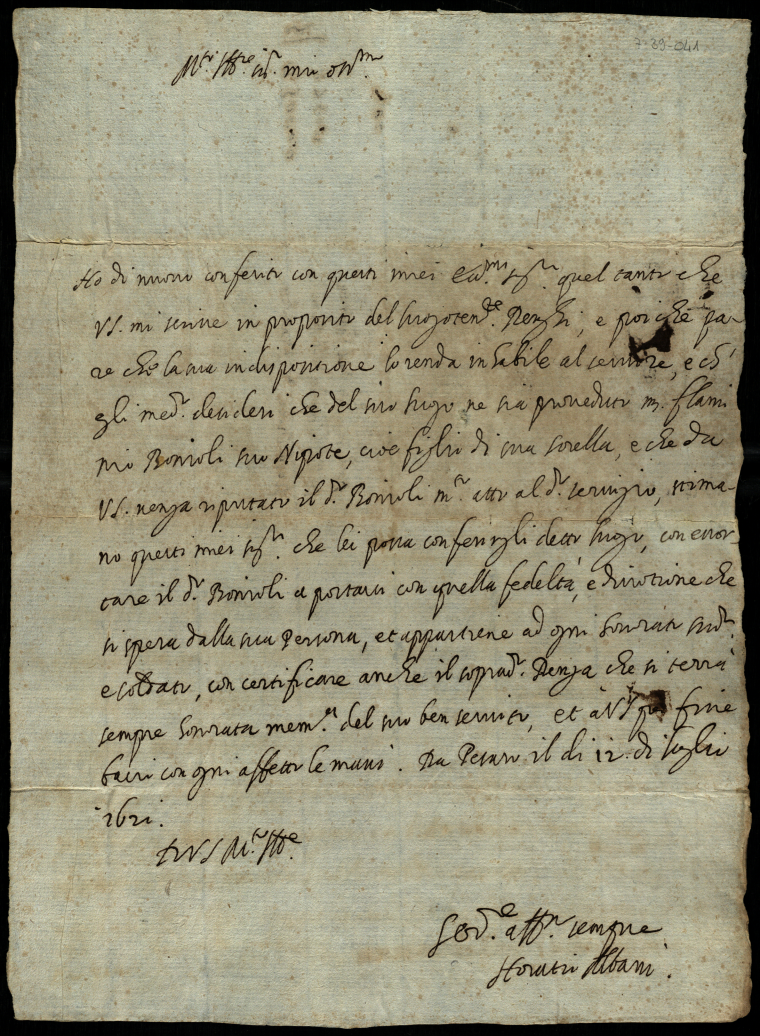 7-39-041
M.to Ill.re sig.r mio oss.mo
Ho di nuovo conferito con questi miei Ecc.mi sig.ri quel tanto che
VS. mi scrive in proposito del luogoten.te Renzi, e poi che pa-
re che la sua indispositione lo renda inhabile al servire, e ch'
egli med.o desideri che del suo luogo ne sia proveduto m. flami
nio Bonioli suo Nipote, cioè figlio di sua sorella, e che da
VS. venga riputato il d.o Bonioli m.to atto al d.o servizio, stima-
no questi miei sig.ri che lei possa conferirgli detto luogo, con essor
tare il d.o Bonioli a portarsi con quella fedeltà, e divotione che
si spera dalla sua Persona, et appartiene ad ogni honorato sud.o
e soldato, con certificare anche il soprad.o Renza che si terrà
sempre honorata mem.a del suo ben servito, et à VS. per fine
bacio con ogni affetto le mani. Da Pesaro il dì 12. di luglio
1621.
Di VS M.to Ill.re
Ser.re aff.mo sempre
Horatio Albani.